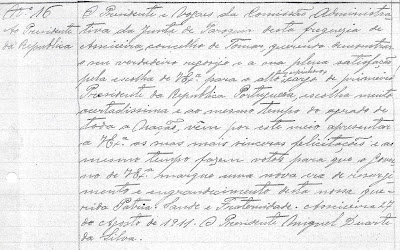 Nº 16
Ao Presidente
da Republica
O Presidente e Vogais da Comissão Administra
tiva da Junta de Parochia desta freguezia de
Asseiceira, concelho de Tomar, querendo demonstrar
o seu verdadeiro regosijo e a sua plena satisfação
pela escolha de V. Exª para o alto cargo de primeiro
Presidente da Republica Portugueza, escolha muito
acertadissima e ao mesmo tempo do agrado de
toda a Nação, vêm por este meio apresentar
a V. Exª as suas mais sinceras felicitações e ao
mesmo tempo fazem votos para que o Gover
no de V. Exª marque uma nova era de resurgi
mento e engrandecimento desta nossa que
rida Patria. Saude e Fraternidade. Asseiceira 27
de Agosto de 1911. O Presidente Miguel Duarte
da Silva.